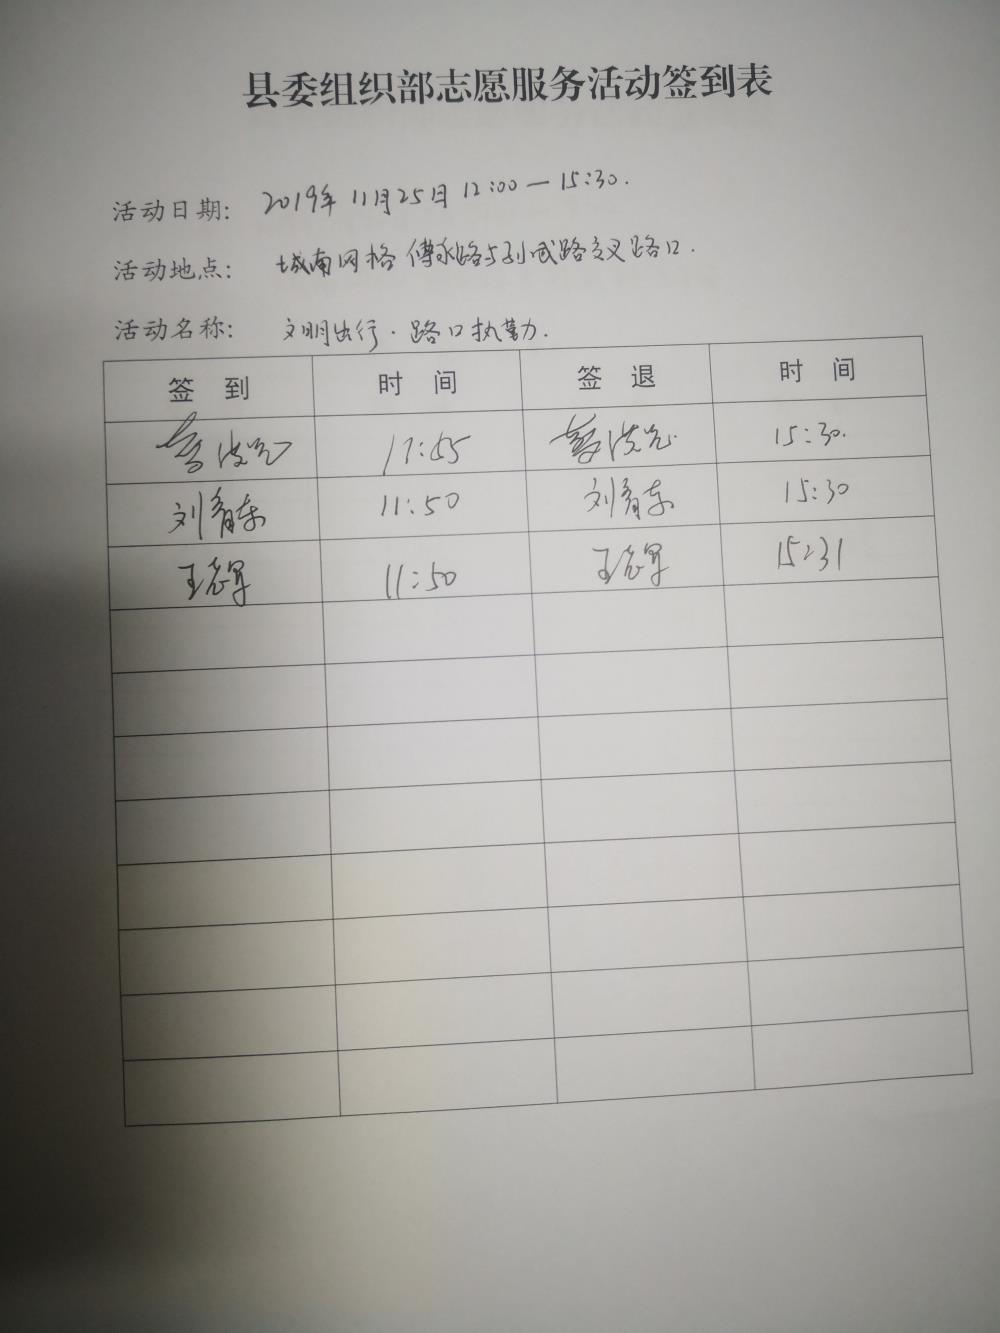 县委组织部志愿服务活动签到表
活动日期: 2019年11月25日 12:00—15:30.
活动地点: 城南网格 傅永路与孙武路交叉路口.
活动名称: 文明出行·路口执勤.
签 到 时 间 签 退 时 间
15:30.
刘青东 11:50 刘青东 15:30
王志军 11:50 王志军 15:31